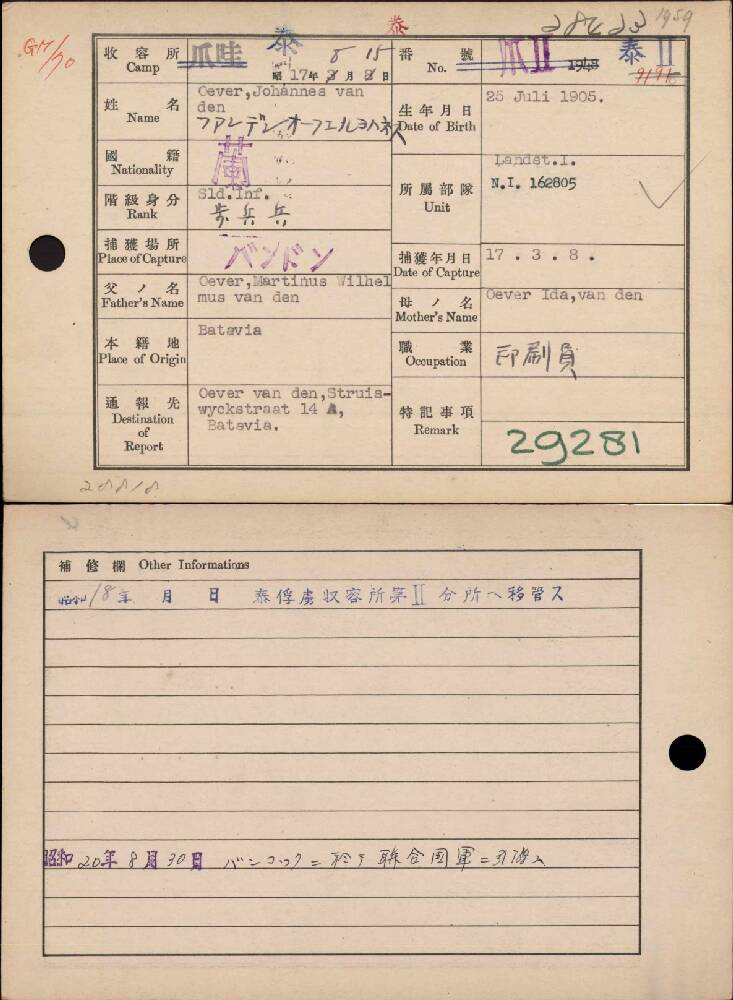 28423 1959
泰
GM/70
収容所 Camp
爪哇 泰
昭17年8月15日
番號 No.
爪II 1943 泰II
9196
姓名 Name
Oever, Johannes van
den
ファンデンオーフェルヨハネス
生年月日 Date of Birth
25 Juli 1905.
國籍 Nationality
蘭
階級身分 Rank
Sld.Inf.
歩兵兵
所属部隊 Unit
Landst.I.
N.I. 162805
捕獲場所 Place of Capture
バンドン
捕獲年月日 Date of Capture
17.3.8.
父ノ名 Father's Name
Oever, Martinus Wilhel
mus van den
母ノ名 Mother's Name
Oever Ida, van den
本籍地 Place of Origin
Batavia
職業 Occupation
印刷員
通報先 Destination of Report
Oever van den, Struis-
wyckstraat 14 A,
Batavia.
特記事項 Remark
29281
補修欄 Other Informations
昭和18年 月 日 泰俘虜収容所第II分所ヘ移管ス
昭和20年8月30日 バンコックニ於テ聯合国軍ニ引渡ス